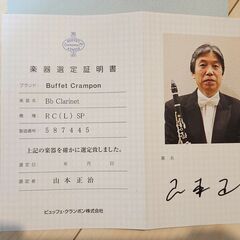 楽器選定証明書
ブランド Buffet Crampon
楽器名 Bb Clarinet
機種 RC(L) SP
製造番号 587445
上記の楽器を確かに選定致しました。
選定日 年 月 日
選定者 山本正治
ビュッフェ・クランポン株式会社
署名
山本正